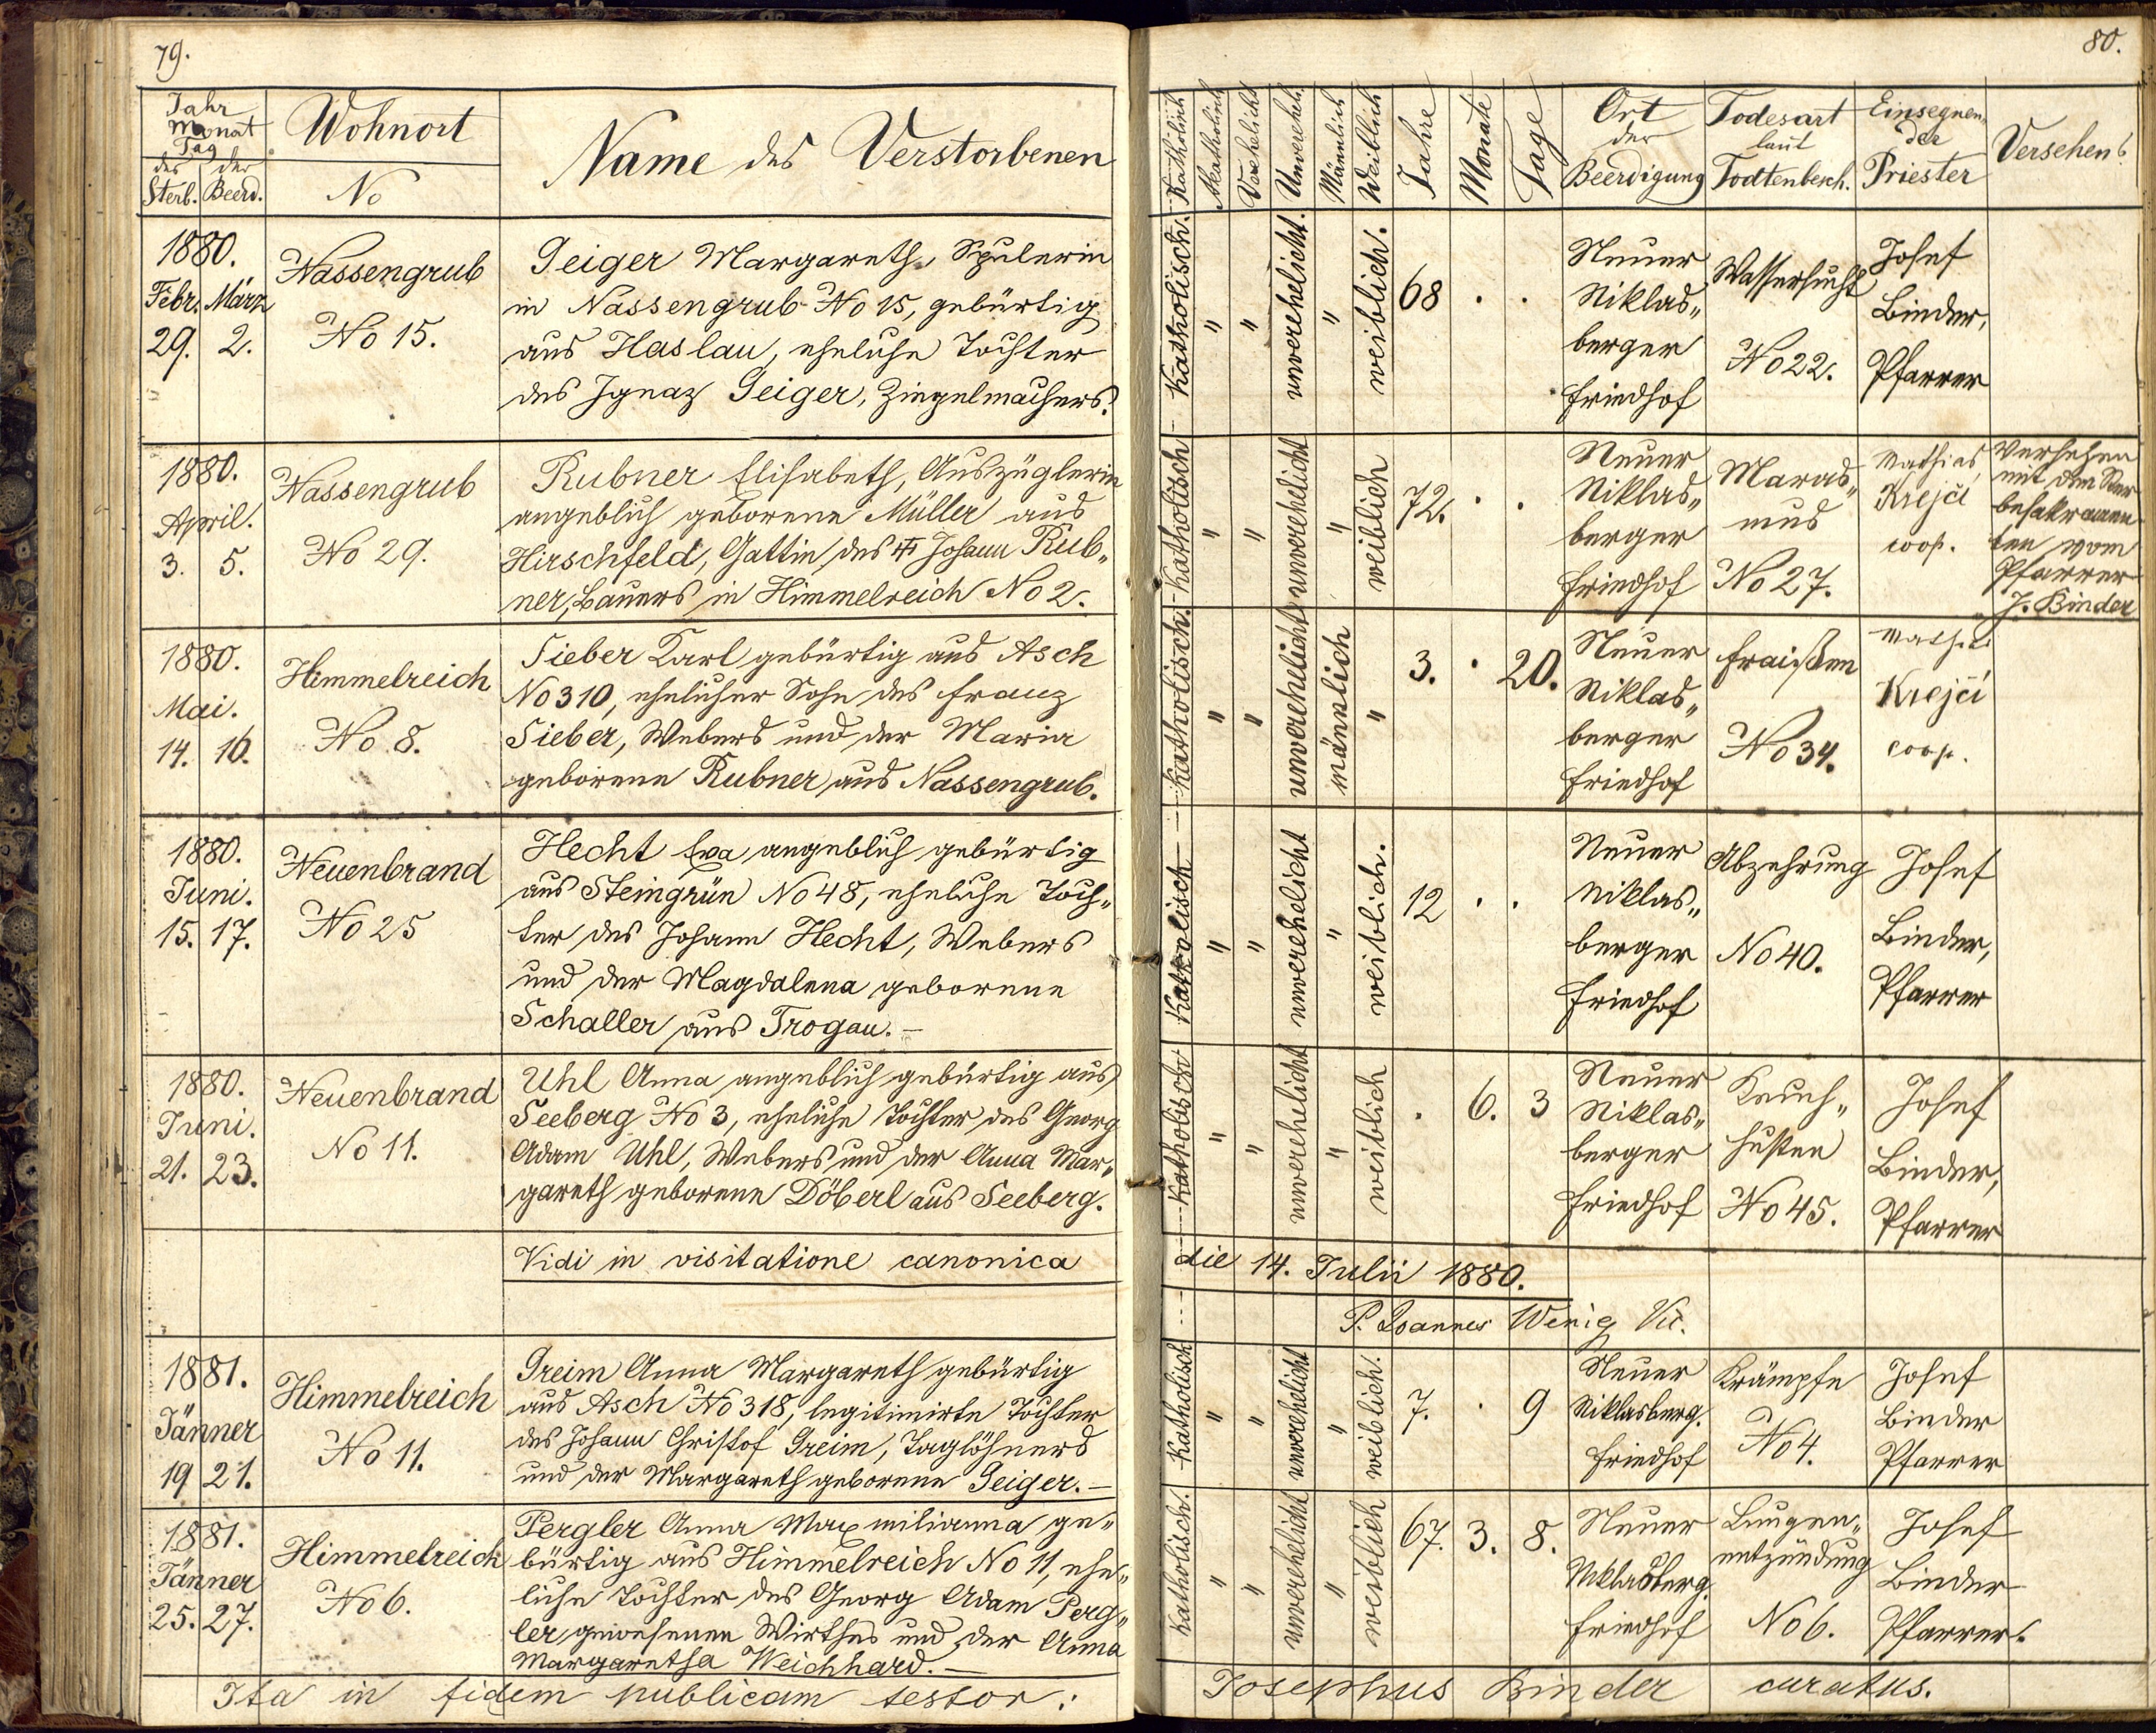 79.
Jahr
Monat
Tag
des Sterb.
der Beerd.
Wohnort
No
Name des Verstorbenen
1880.
Febr. März
29. 2.
Nassengrub
No 15.
Geiger Margareth, Spulerin
in Nassengrub No 15, gebürtig
aus Haslau, eheliche Tochter
des Ignaz Geiger, Ziegelmachers.
1880.
April.
3. 5.
Nassengrub
No 29.
Rubner Elisabeth, Auszüglerin
angeblich geborene Müller aus
Hirschfeld, Gattin des Johann Rub„
ner, Bauers in Himmelreich No 2.
1880.
Mai.
14. 16.
Himmelreich
No 8.
Sieber Karl gebürtig aus Asch
No 310, ehelicher Sohn des Franz
Sieber, Webers und der Maria
geborene Rubner aus Nassengrub.
1880.
Juni.
15. 17.
Neuenbrand
No 25
Hecht Eva angeblich gebürtig
aus Steingrün No 48, eheliche Toch„
ter des Johann Hecht, Webers
und der Magdalena geborene
Schaller aus Trogau. —
1880.
Juni.
21. 23.
Neuenbrand
No 11.
Uhl Anna angeblich gebürtig aus
Seeberg No 3, eheliche Tochter des Georg
Adam Uhl, Webers und der Anna Mar„
gareth geborene Döberl aus Seeberg.
Vidi in visitatione canonica
1881.
Jänner
19 21.
Himmelreich
No 11.
Greim Anna Margareth gebürtig
aus Asch No 318, legitimirte Tochter
des Johann Christof Greim, Taglöhners
und der Margareth geborene Geiger. —
1881.
Jänner
25. 27.
Himmelreich
No 6.
Pergler Anna Maxmilianna ge„
bürtig aus Himmelreich No 11, ehe„
liche Tochter des Georg Adam Perg„
ler, gewesenen Wirthes und der Anna
Margaretha Weichhard. —
Ita in fidem publicam testor:
80.
Katholisch
Akatholisch
Verehelicht
Unverehel.
Männlich
Weiblich
Jahre
Monate
Tage
Ort
der
Beerdigung
Todesart
laut
Todtenbesch.
Einsegnen„
der
Priester
Versehen
Katholisch. " " unverehelicht. " weiblich. 68 . .
Neuer
Niklas„
berger
Friedhof
Wassersucht
No 22.
Josef
Binder,
Pfarrer
Katholisch " " unverehelicht " weiblich 72. . .
Neuer
Niklas„
berger
Friedhof
Maras„
mus
No 27.
Mathias
Krejčí
coop.
Versehen
mit den Ster
besakramen
ten vom
Pfarrer
J. Binder
Katholisch. " " unverehelicht männlich " 3. . 20.
Neuer
Niklas„
berger
Friedhof
Fraißen
No 34.
Mathias
Krejčí
coop.
Katholisch " " unverehelicht " weiblich. 12 . .
Neuer
Niklas„
berger
Friedhof
Abzehrung
No 40.
Josef
Binder,
Pfarrer
Katholisch " " unverehelicht " weiblich . 6. 3
Neuer
Niklas„
berger
Friedhof
Keuch„
husten
No 45.
Josef
Binder,
Pfarrer
die 14. Julii 1880.
P. Joannes Wenig Vic.
Katholisch " " unverehelicht " weiblich. 7. . 9
Neuer
Niklasberg.
Friedhof
Krämpfe
No 4.
Josef
Binder
Pfarrer
Katholisch. " " unverehelicht " weiblich 67. 3. 8.
Neuer
Niklasberg.
Friedhof
Lungen„
entzündung
No 6.
Josef
Binder
Pfarrer.
Josephus Binder curatus.